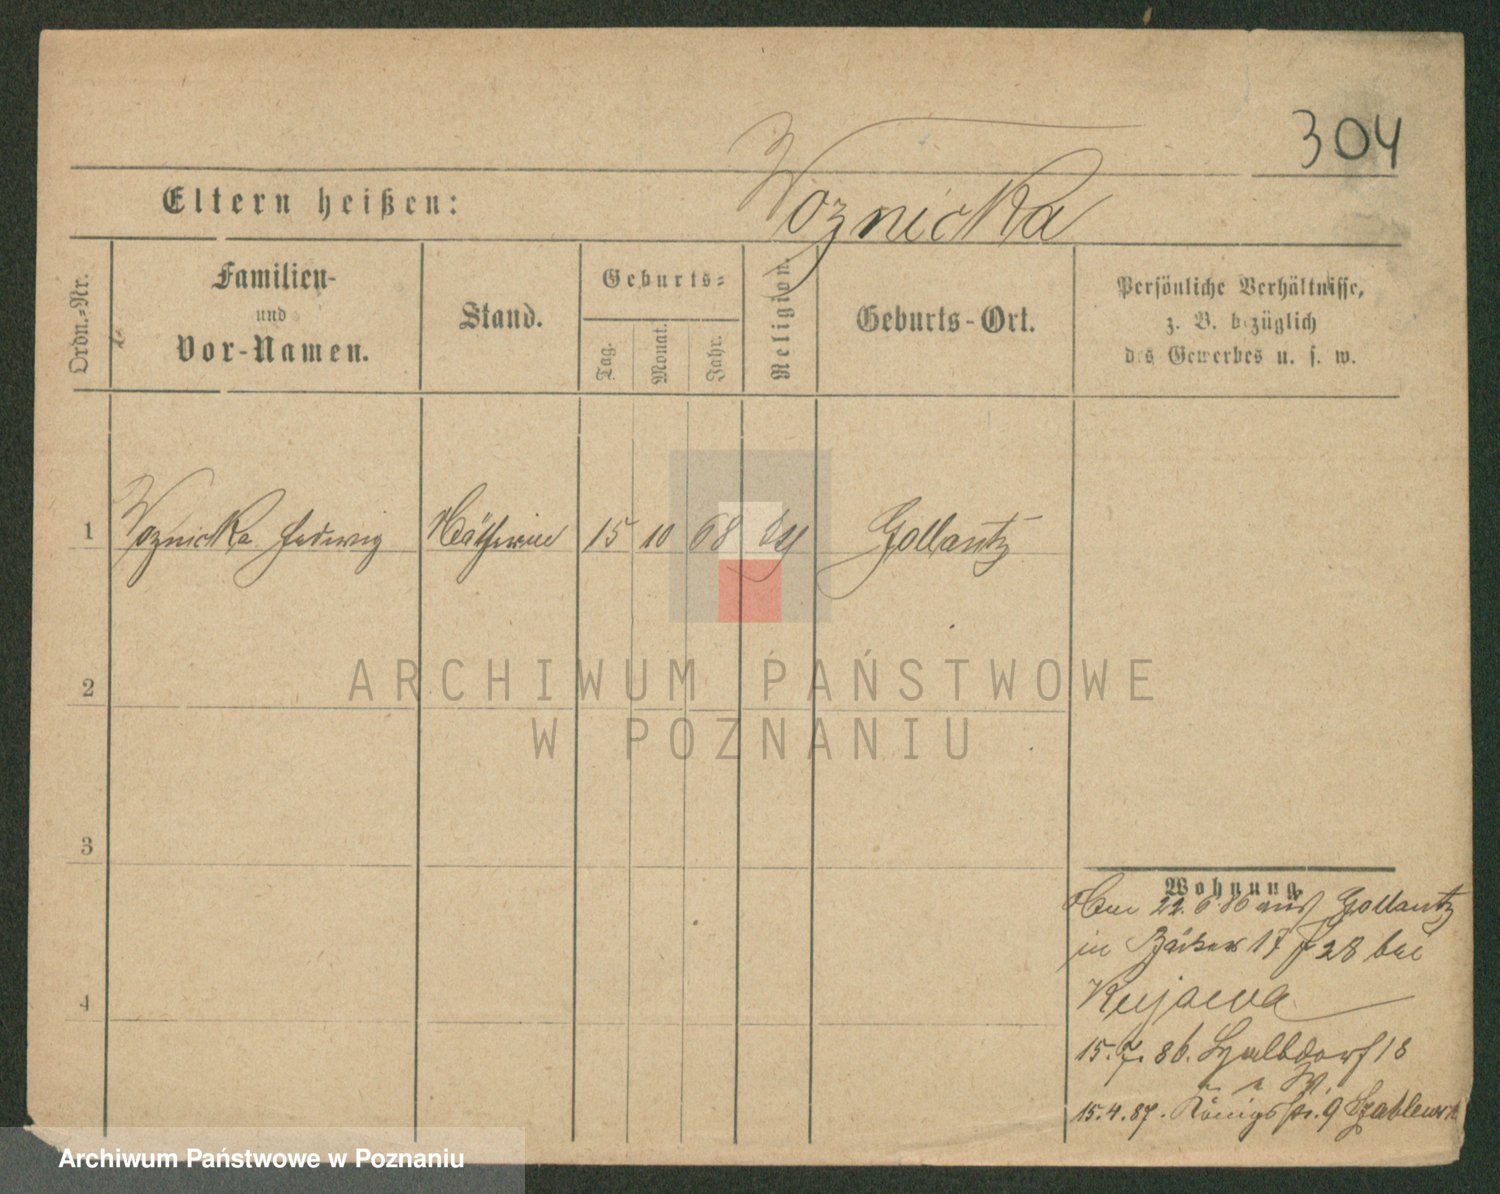 304
Woznicka
Eltern heißen:
Ordn.-Nr.
Familien-
und
Vor-Namen.
Stand.
Geburts-
Tag.
Monat.
Jahr.
Religion.
Geburts-Ort.
Persönliche Verhältnisse,
z. B. bezüglich
des Gewerbes u. s. w.
1 Woznicka Hedwig Nätherin 15 10 68 Gollantz
2
3
4
ARCHIWUM PAŃSTWOWE
W POZNANIU
Wohnung
22.6.86 aus Gollantz
in Bäcker 17 28 bei
Kujawa
15.7.86. Halbdorf 18
15.4.87. Königsstr. 9
Archiwum Państwowe w Poznaniu